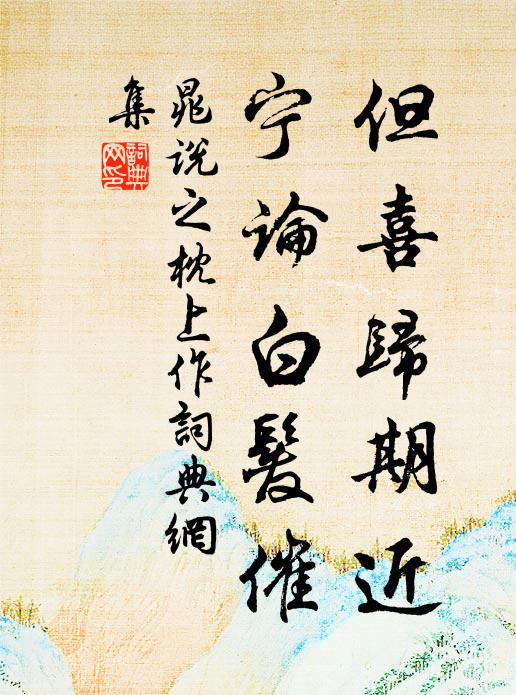 但喜歸期近
宁論白髮催
晁說之枕上作詞典網
集
詞典
网印